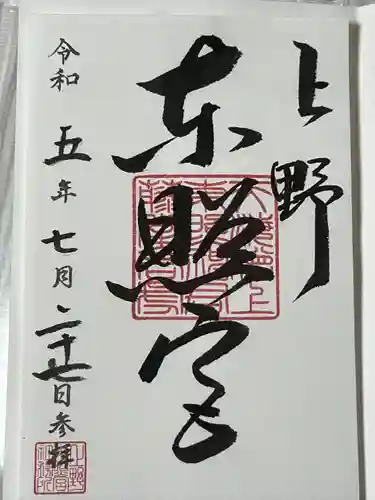 上野
東照宮
令和五年七月二十七日参拝